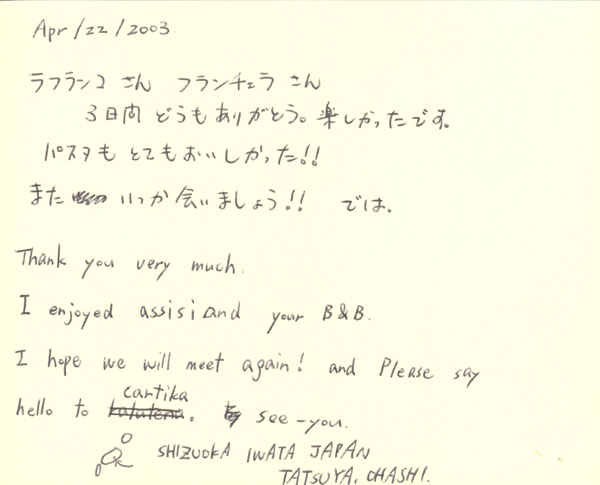 Apr/22/2003
ラフランコ さん フランチェラ さん
3日間 どうも ありがとう。楽しかったです。
パスタも とても おいしかった!!
また いつか 会いましょう!! では。
Thank you very much.
I enjoyed assisi and your B&B.
I hope we will meet again! and Please say
hello to cartika. see-you.
SHIZUOKA IWATA JAPAN
TATSUYA. OHASHI.